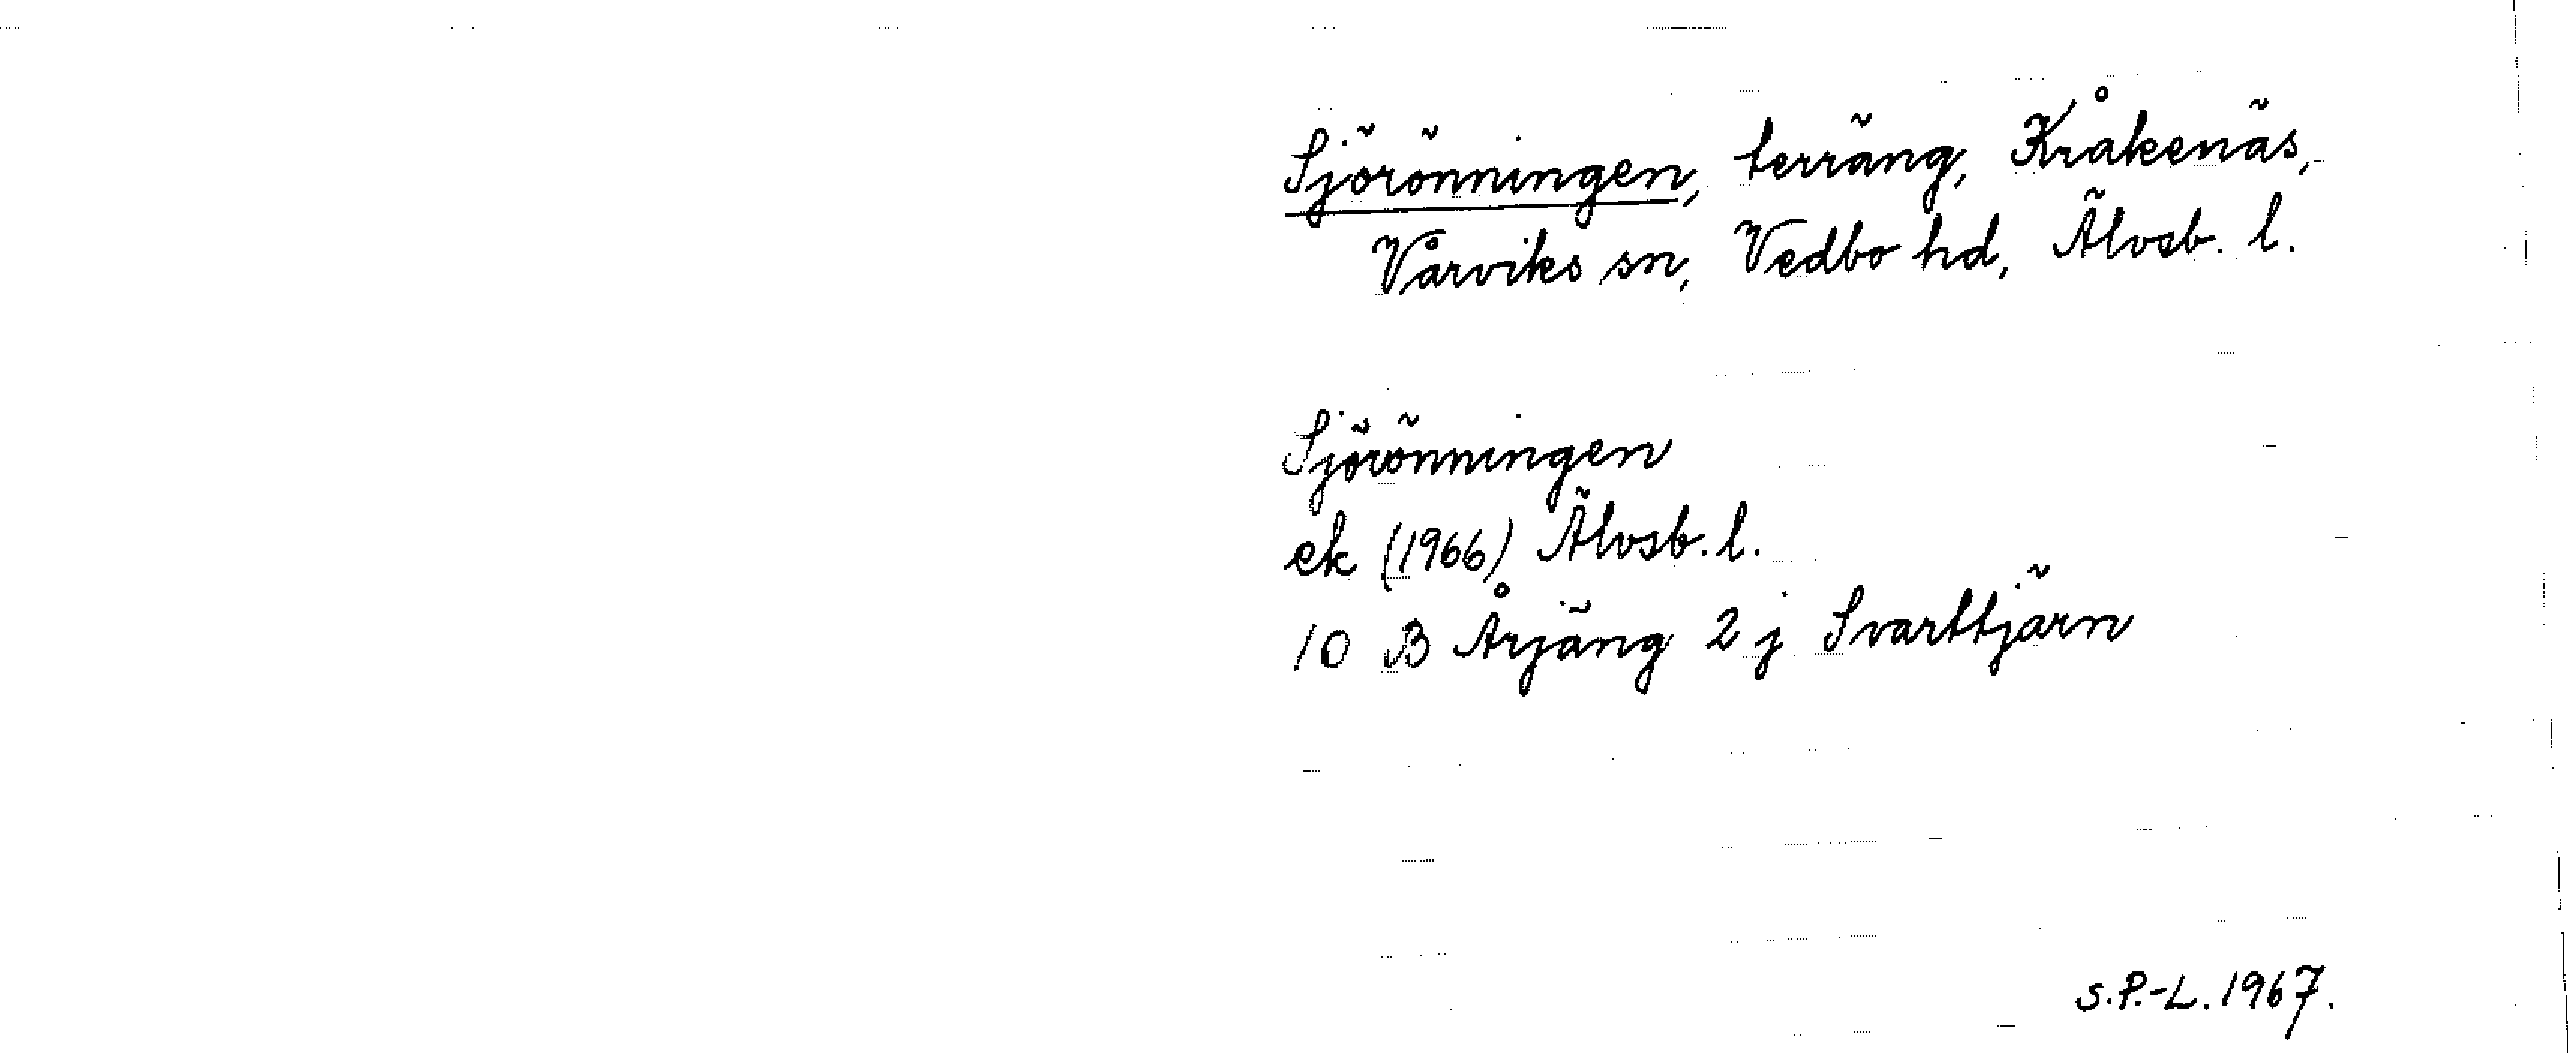 Sjörönningen, terräng, Kråkenäs,
Vårviks sn, Vedbo hd, Älvsb. l.
Sjörönningen
ek (1966) Älvsb. l.
10 B Årjäng 2 j Svarttjärn
S.P.-L. 1967.